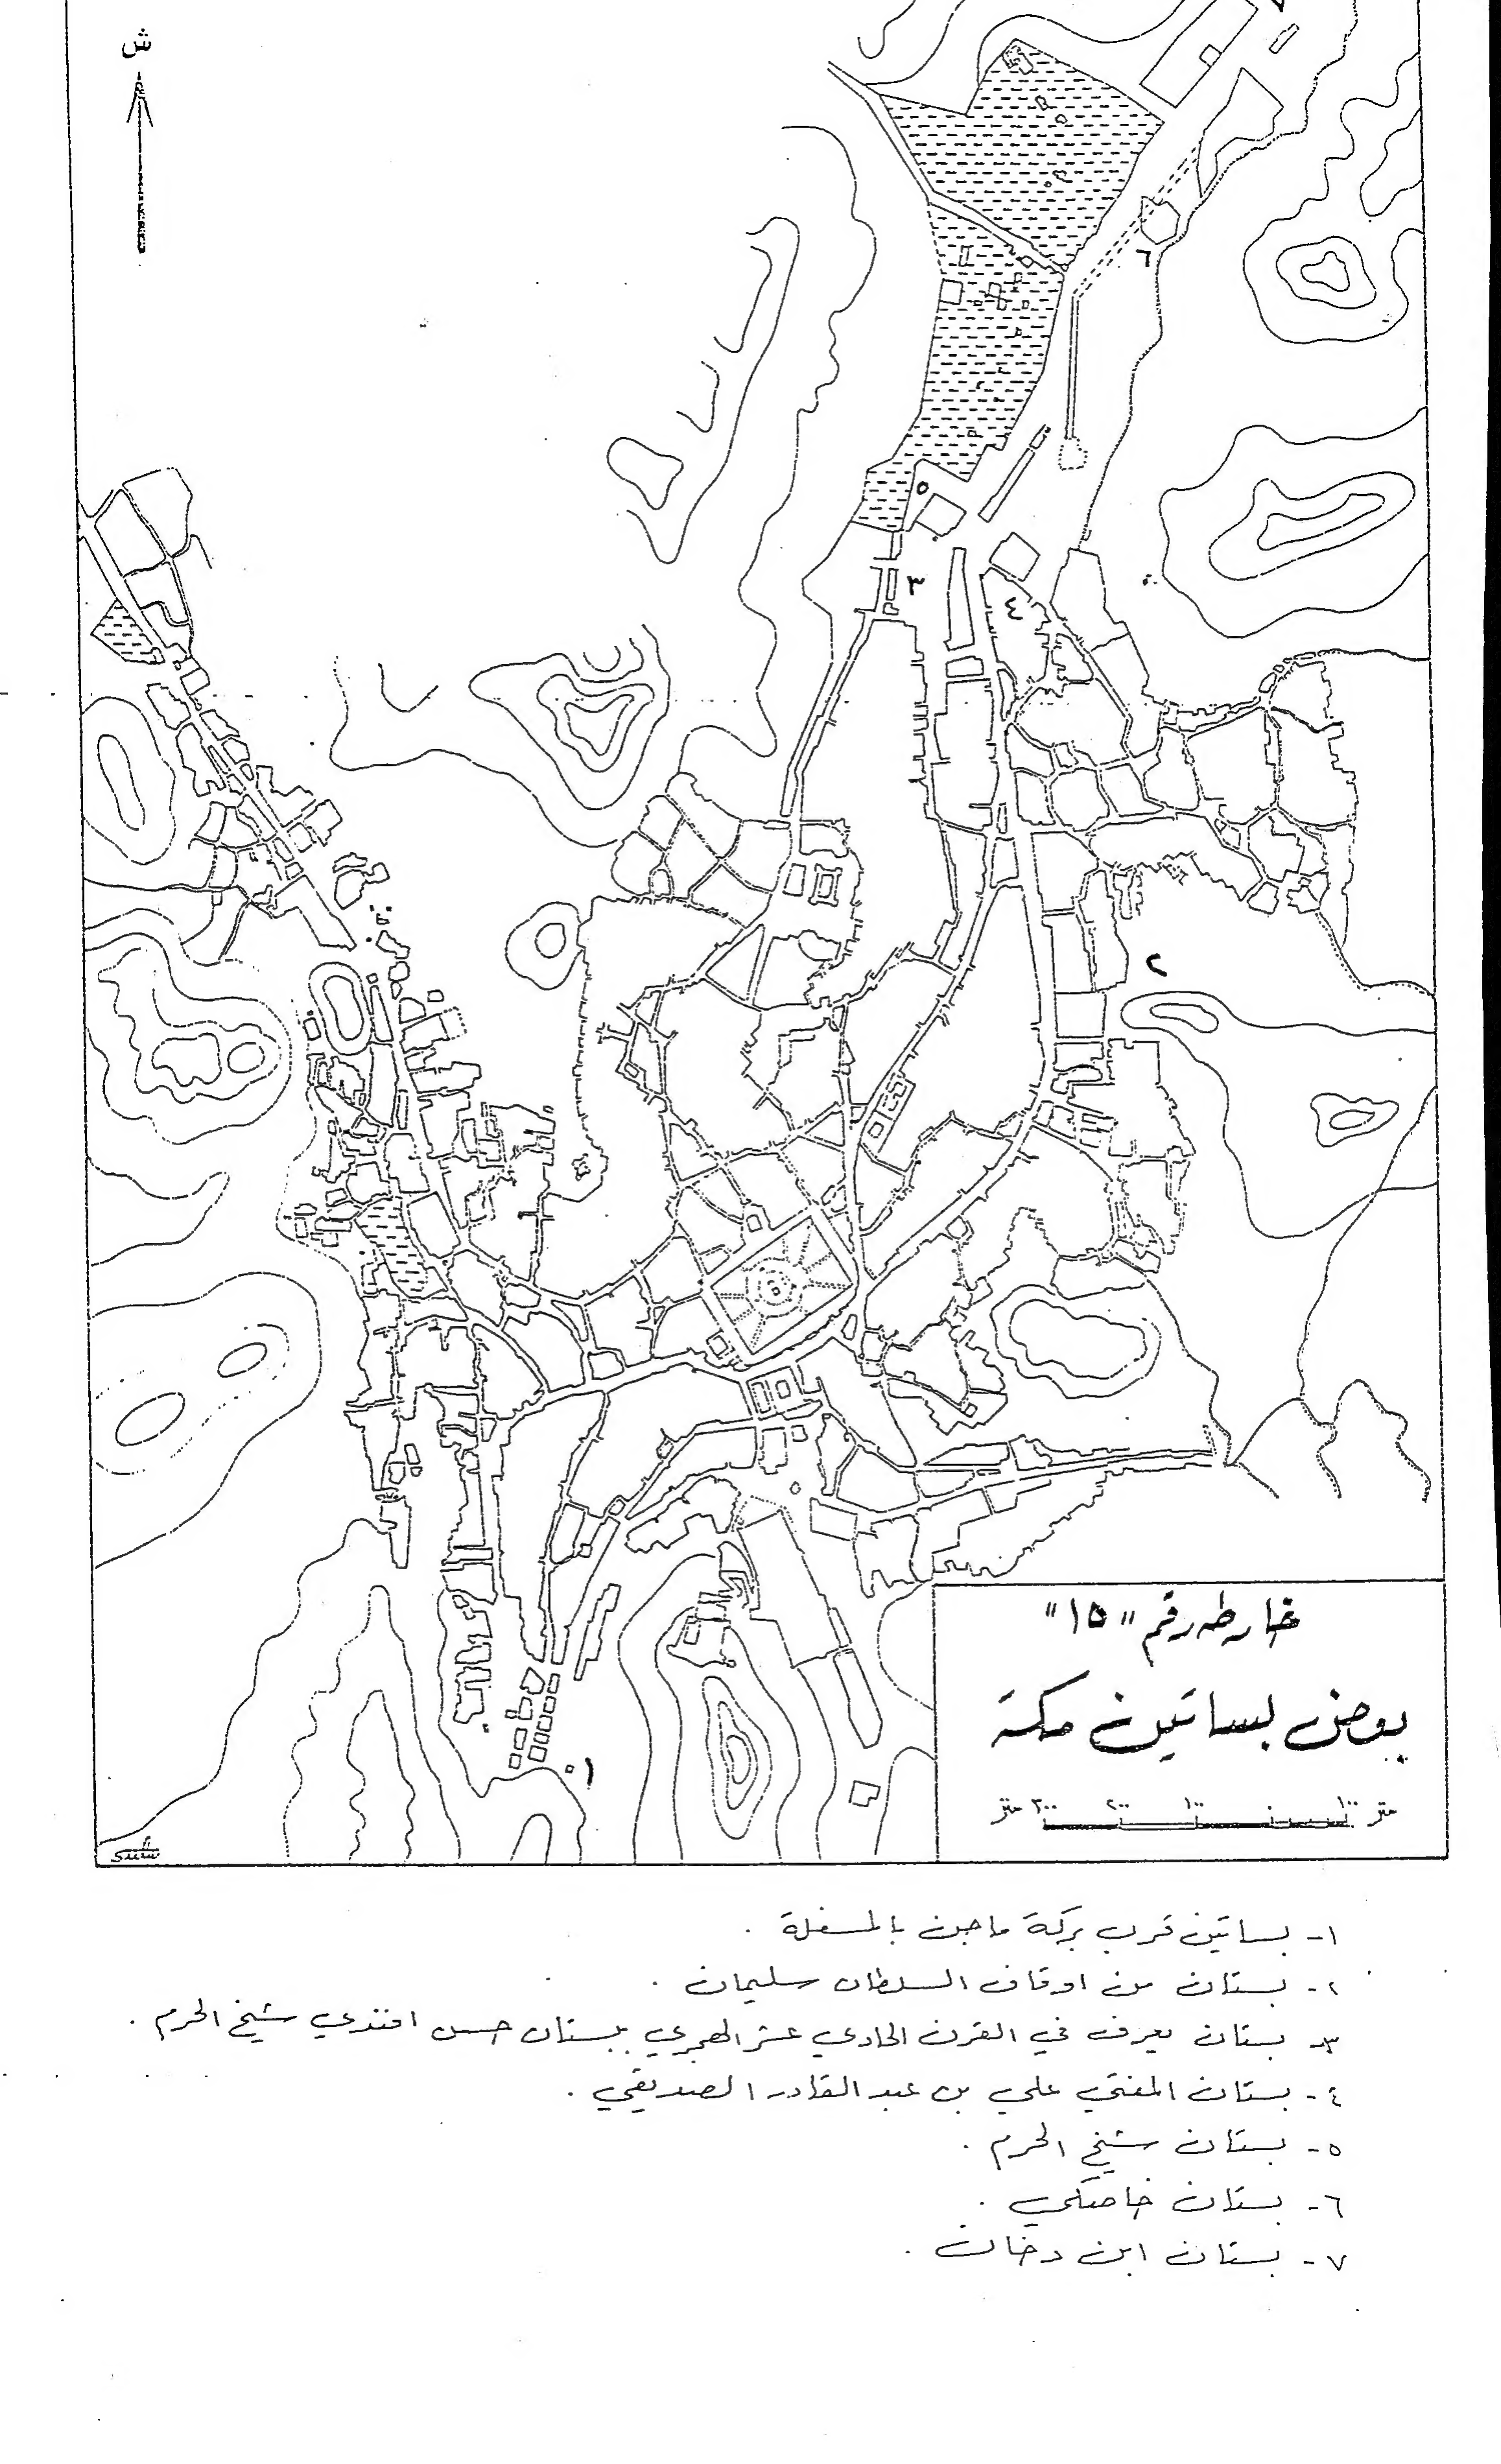 ش
٦
٥
٣
٤
٢
١
خارطه رقم "١٥"
بعض بساتين مكة
متر ٣٠٠ ٢٠٠ ١٠٠ ٠ ١٠٠ متر
١- بساتين قرب بركة ماجن بالمسفلة .
٢- بستان من اوقاف السلطان سليمان .
٣- بستان يعرف في القرن الحادي عشر الهجري ببستان حسن افندي شيخ الحرم .
٤- بستان المفتي علي بن عبد القادر الصديقي .
٥- بستان شيخ الحرم .
٦- بستان خاصكي .
٧- بستان ابن دخان .